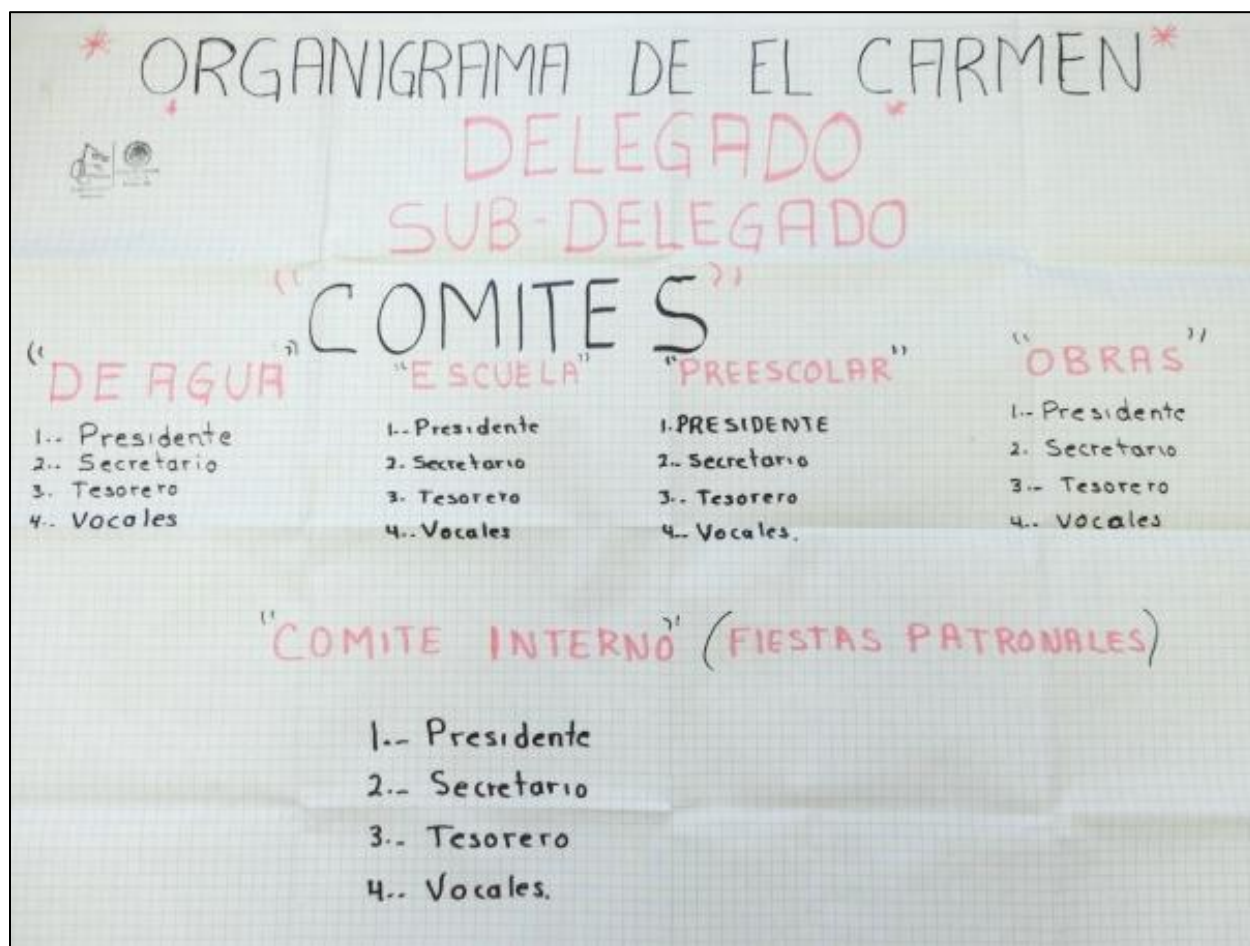 * ORGANIGRAMA DE EL CARMEN *
* DELEGADO *
SUB-DELEGADO
"COMITES"
"DE AGUA"
1.- Presidente
2.- Secretario
3. Tesorero
4.- Vocales
"ESCUELA"
1.- Presidente
2. Secretario
3. Tesorero
4.- Vocales
"PREESCOLAR"
1. PRESIDENTE
2.- Secretario
3.- Tesorero
4.- Vocales.
"OBRAS"
1.- Presidente
2. Secretario
3.- Tesorero
4.- Vocales
"COMITE INTERNO" (FIESTAS PATRONALES)
1.- Presidente
2.- Secretario
3.- Tesorero
4.- Vocales.